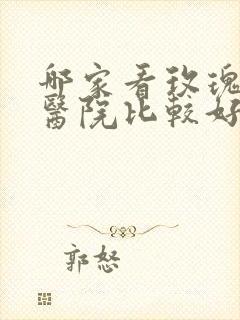 哪家看玫瑰
醫院比較好
郭怒